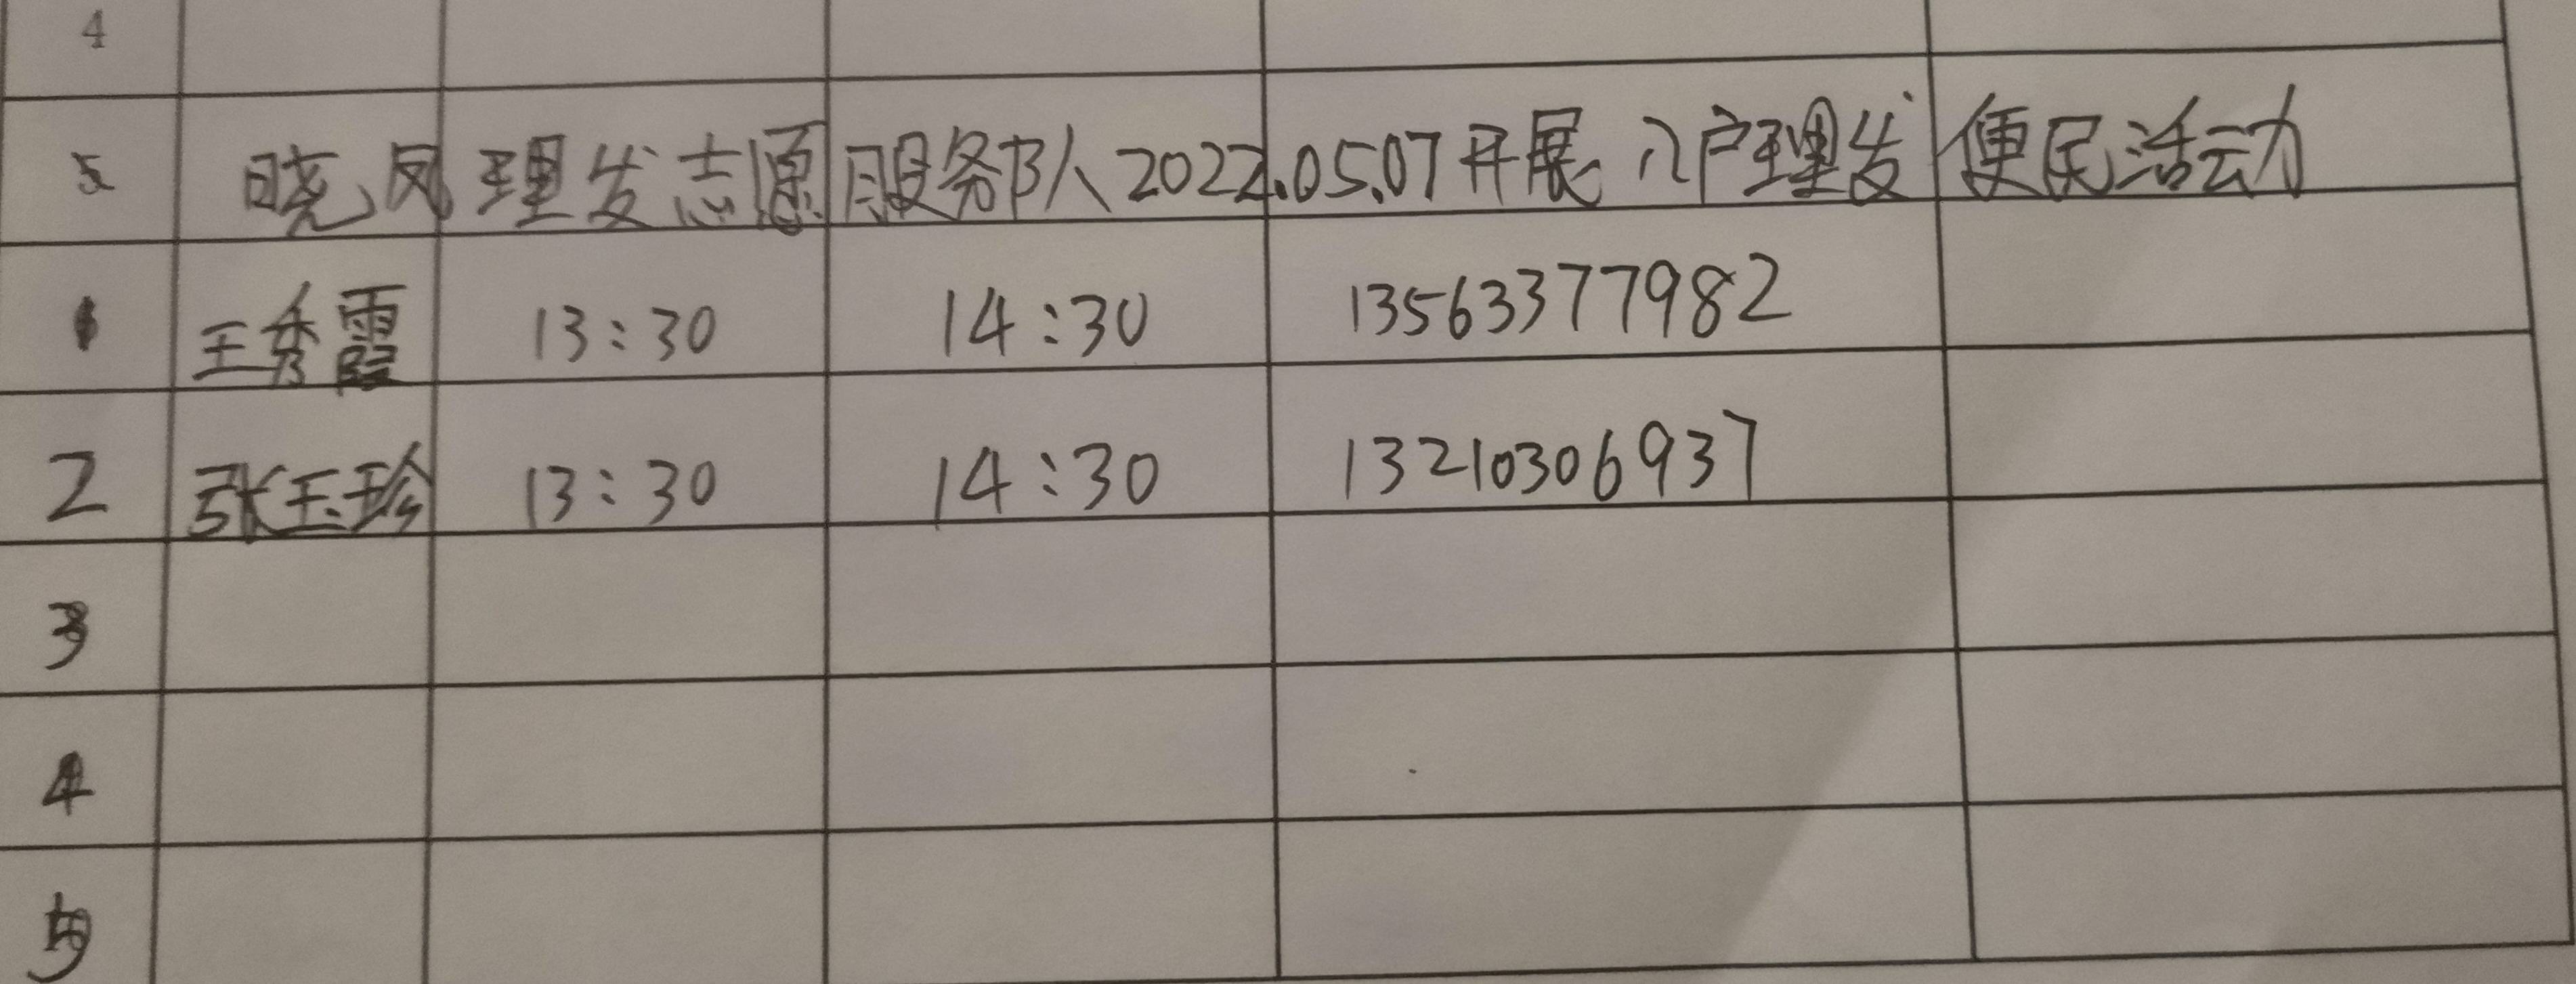 4
5 晓凤理发志愿服务队2022.05.07开展入户理发便民活动
1 王秀霞 13:30 14:30 13563377982
2 张玉珍 13:30 14:30 13210306937
3
4
5